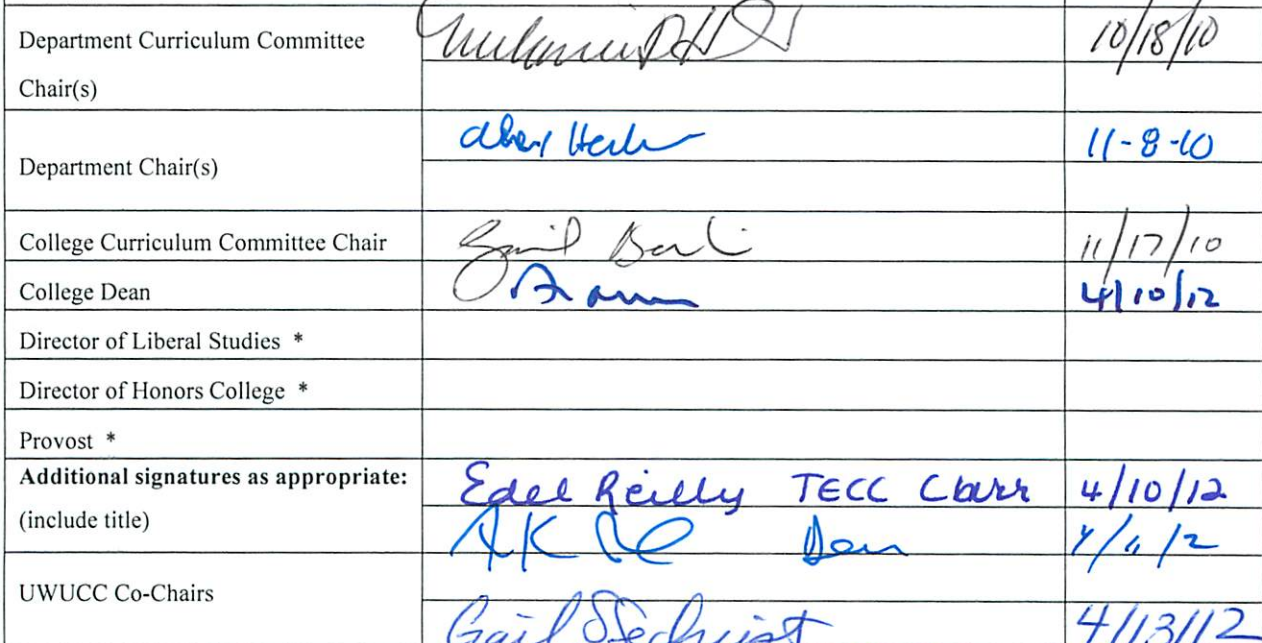 Department Curriculum Committee 10/18/10
Chair(s)
Department Chair(s) 11-8-10
College Curriculum Committee Chair 11/17/10
College Dean 4/10/12
Director of Liberal Studies *
Director of Honors College *
Provost *
Additional signatures as appropriate: Edel Reilly TECC Chair 4/10/12
(include title) Dean
UWUCC Co-Chairs
Gail Sechrist 4/13/12